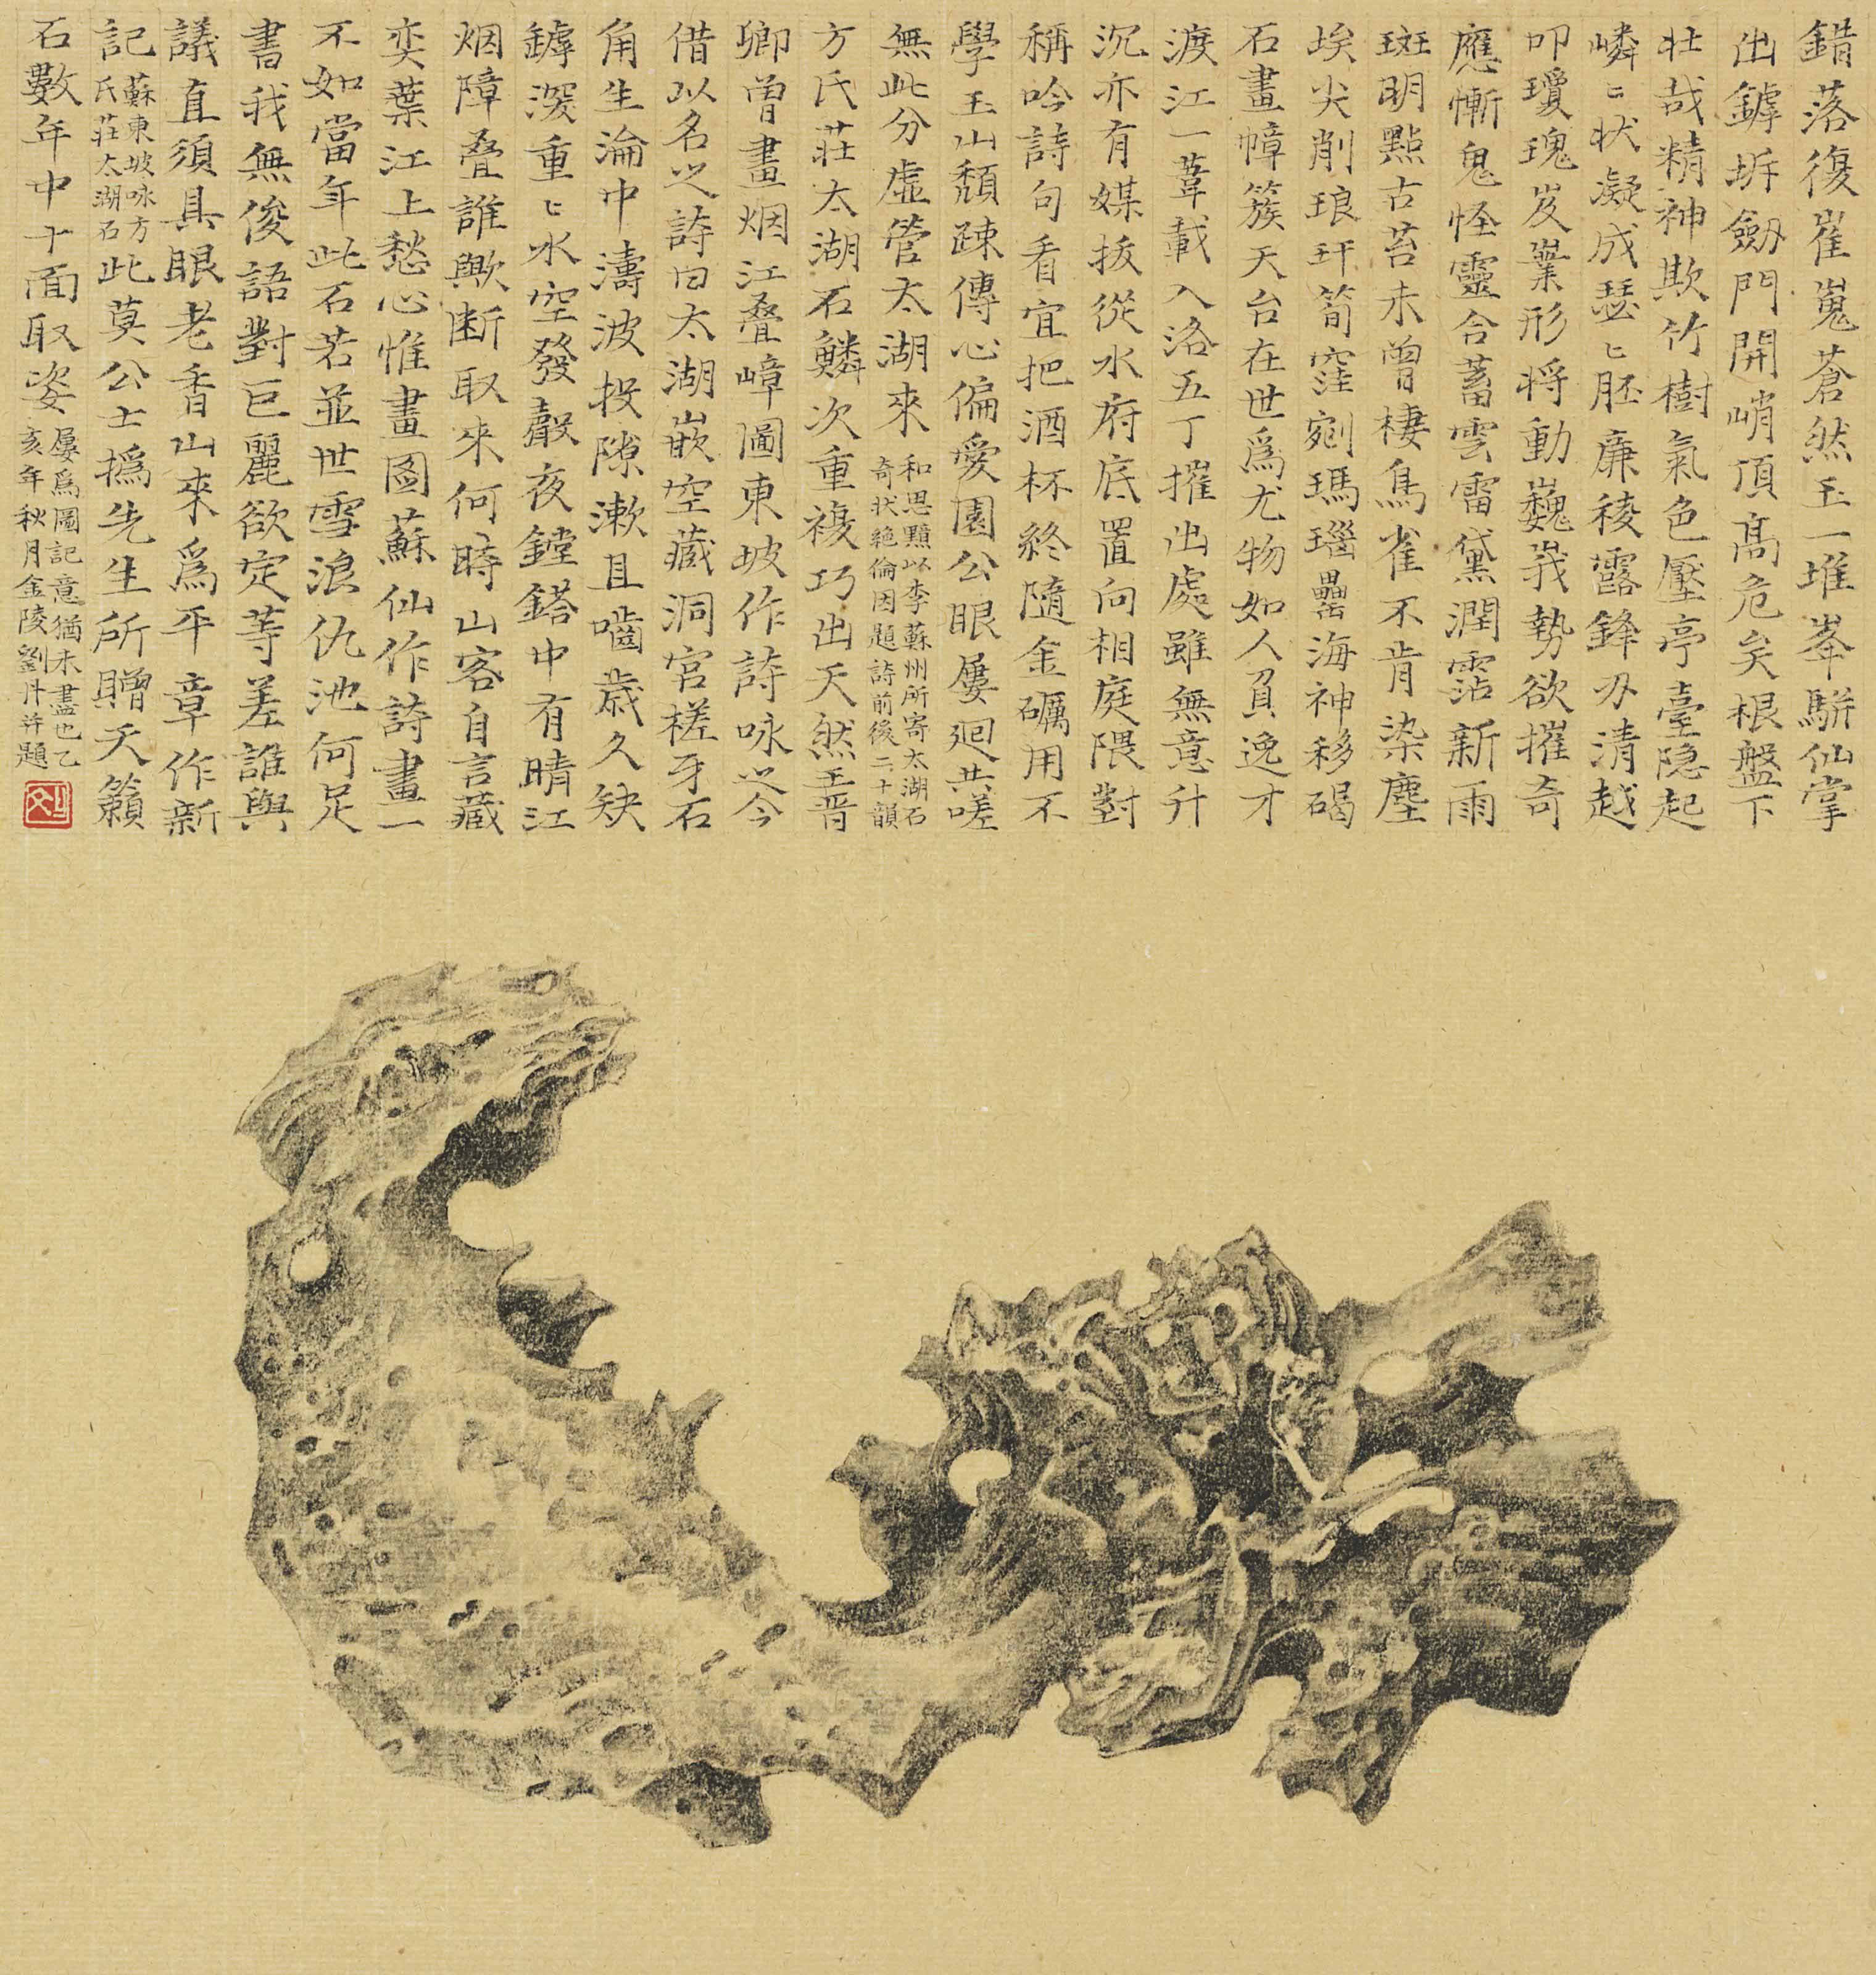 錯落復崔嵬蒼然玉一堆峯駢仙掌
出罅坼劒門開峭頂高危矣根盤下
壯哉精神欺竹樹氣色壓亭臺隐起
嶙〻狀凝成瑟〻胚廉稜露鋒刃清越
叩瓊瑰岌嶪形将動巍峩勢欲摧奇
應慚鬼怪靈合蓄雲雷黛潤霑新雨
斑明點古苔未曾棲鳥雀不肯染塵
埃尖削琅玕笥窪剜瑪瑙罍海神移碣
石畫幛簇天台在世爲尤物如人負逸才
渡江一葦載入洛五丁摧出處雖無意升
沉亦有媒拔從水府底置向相庭隈對
稱吟詩句看宜把酒杯終隨金礪用不
學玉山頹疎傳心偏愛園公眼屢廻共嗟
無此分虛管太湖來
和思黯以李蘇州所寄太湖石
奇狀絶倫因題詩前後二十韻
方氏莊太湖石鱗次重複巧出天然王晋
卿曾畫烟江叠嶂圖東坡作詩咏之今
借以名之詩曰太湖嵌空藏洞宮槎牙石
角生淪中濤波投隙漱且嚙歳久缺
罅深重〻水空發聲夜鏜鎝中有晴江
烟障叠誰歟断取來何時山客自言藏
奕葉江上愁心惟畫图蘇仙作詩畫一
不如當年此石若並世雪浪仇池何足
書我無俊語對巨麗欲定等差誰與
議直須具眼老香山來爲平章作新
記
蘇東坡咏方
氏莊太湖石
此莫公士撝先生所贈天籟
石數年中十面取姿
屢爲圖記意猶未盡也乙
亥年秋月金陵劉丹并題